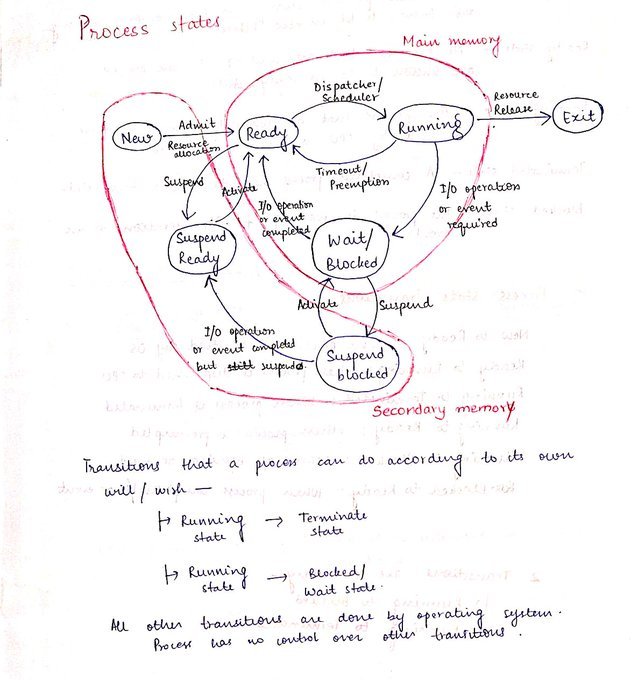 Process states
Main memory
Dispatcher/
Scheduler
Resource
Release
New
Admit
Resource
allocation
Ready
Running
Exit
Timeout/
Preemption
Suspend
Activate
I/O operation
or event
completed
I/O operation
or event
required
Suspend
Ready
Wait/
Blocked
Activate
Suspend
I/O operation
or event completed
but still suspend
Suspend
blocked
Secondary memory
Transitions that a process can do according to its own
will/wish —
Running → Terminate
state state
Running → Blocked/
state Wait state.
All other transitions are done by operating system.
Process has no control over other transitions.